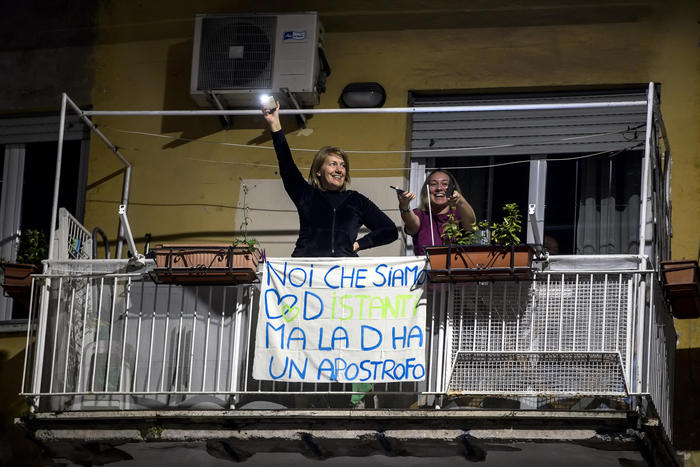 NOI CHE SIAMO
DISTANTI
MA LA D HA
UN APOSTROFO